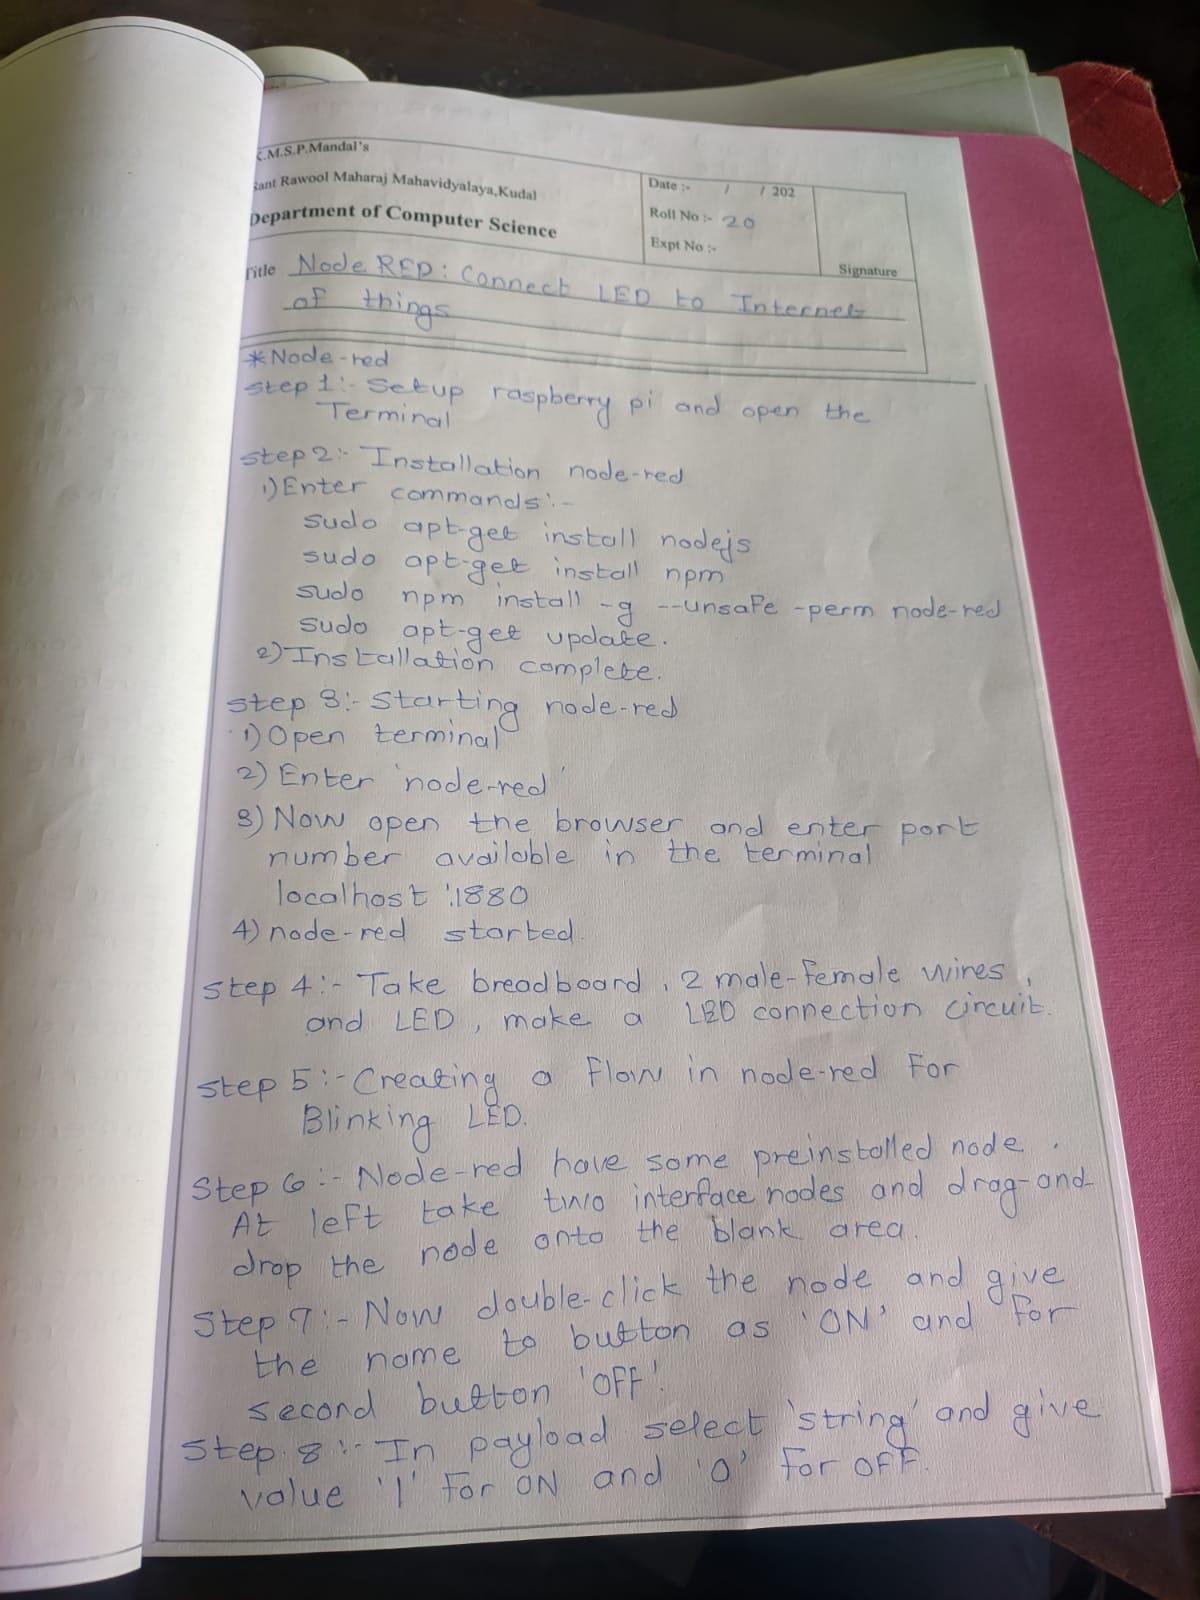 K.M.S.P.Mandal's
Sant Rawool Maharaj Mahavidyalaya,Kudal
Department of Computer Science
Date :- / / 202
Roll No :- 20
Expt No :-
Signature
Title Node RED: Connect LED to Internet
of things
*Node-red
Step 1:- Setup raspberry pi and open the
Terminal
step 2:- Installation node-red
1) Enter commands:-
sudo apt-get install nodejs
sudo apt-get install npm
sudo npm install -g --unsafe -perm node-red
sudo apt-get update.
2) Installation complete.
step 3:- Starting node-red
1) Open terminal
2) Enter 'node-red'
3) Now open the browser and enter port
number available in the terminal
localhost :1880
4) node-red started.
step 4:- Take breadboard, 2 male-female wires,
and LED, make a LED connection circuit.
step 5:- Creating a flow in node-red for
Blinking LED.
Step 6:- Node-red have some preinstalled node.
At left take two interface nodes and drag-and-
drop the node onto the blank area.
Step 7:- Now double-click the node and give
the name to button as 'ON' and for
second button 'OFF'.
Step 8:- In payload select 'string' and give
value '1' for ON and '0' for OFF.